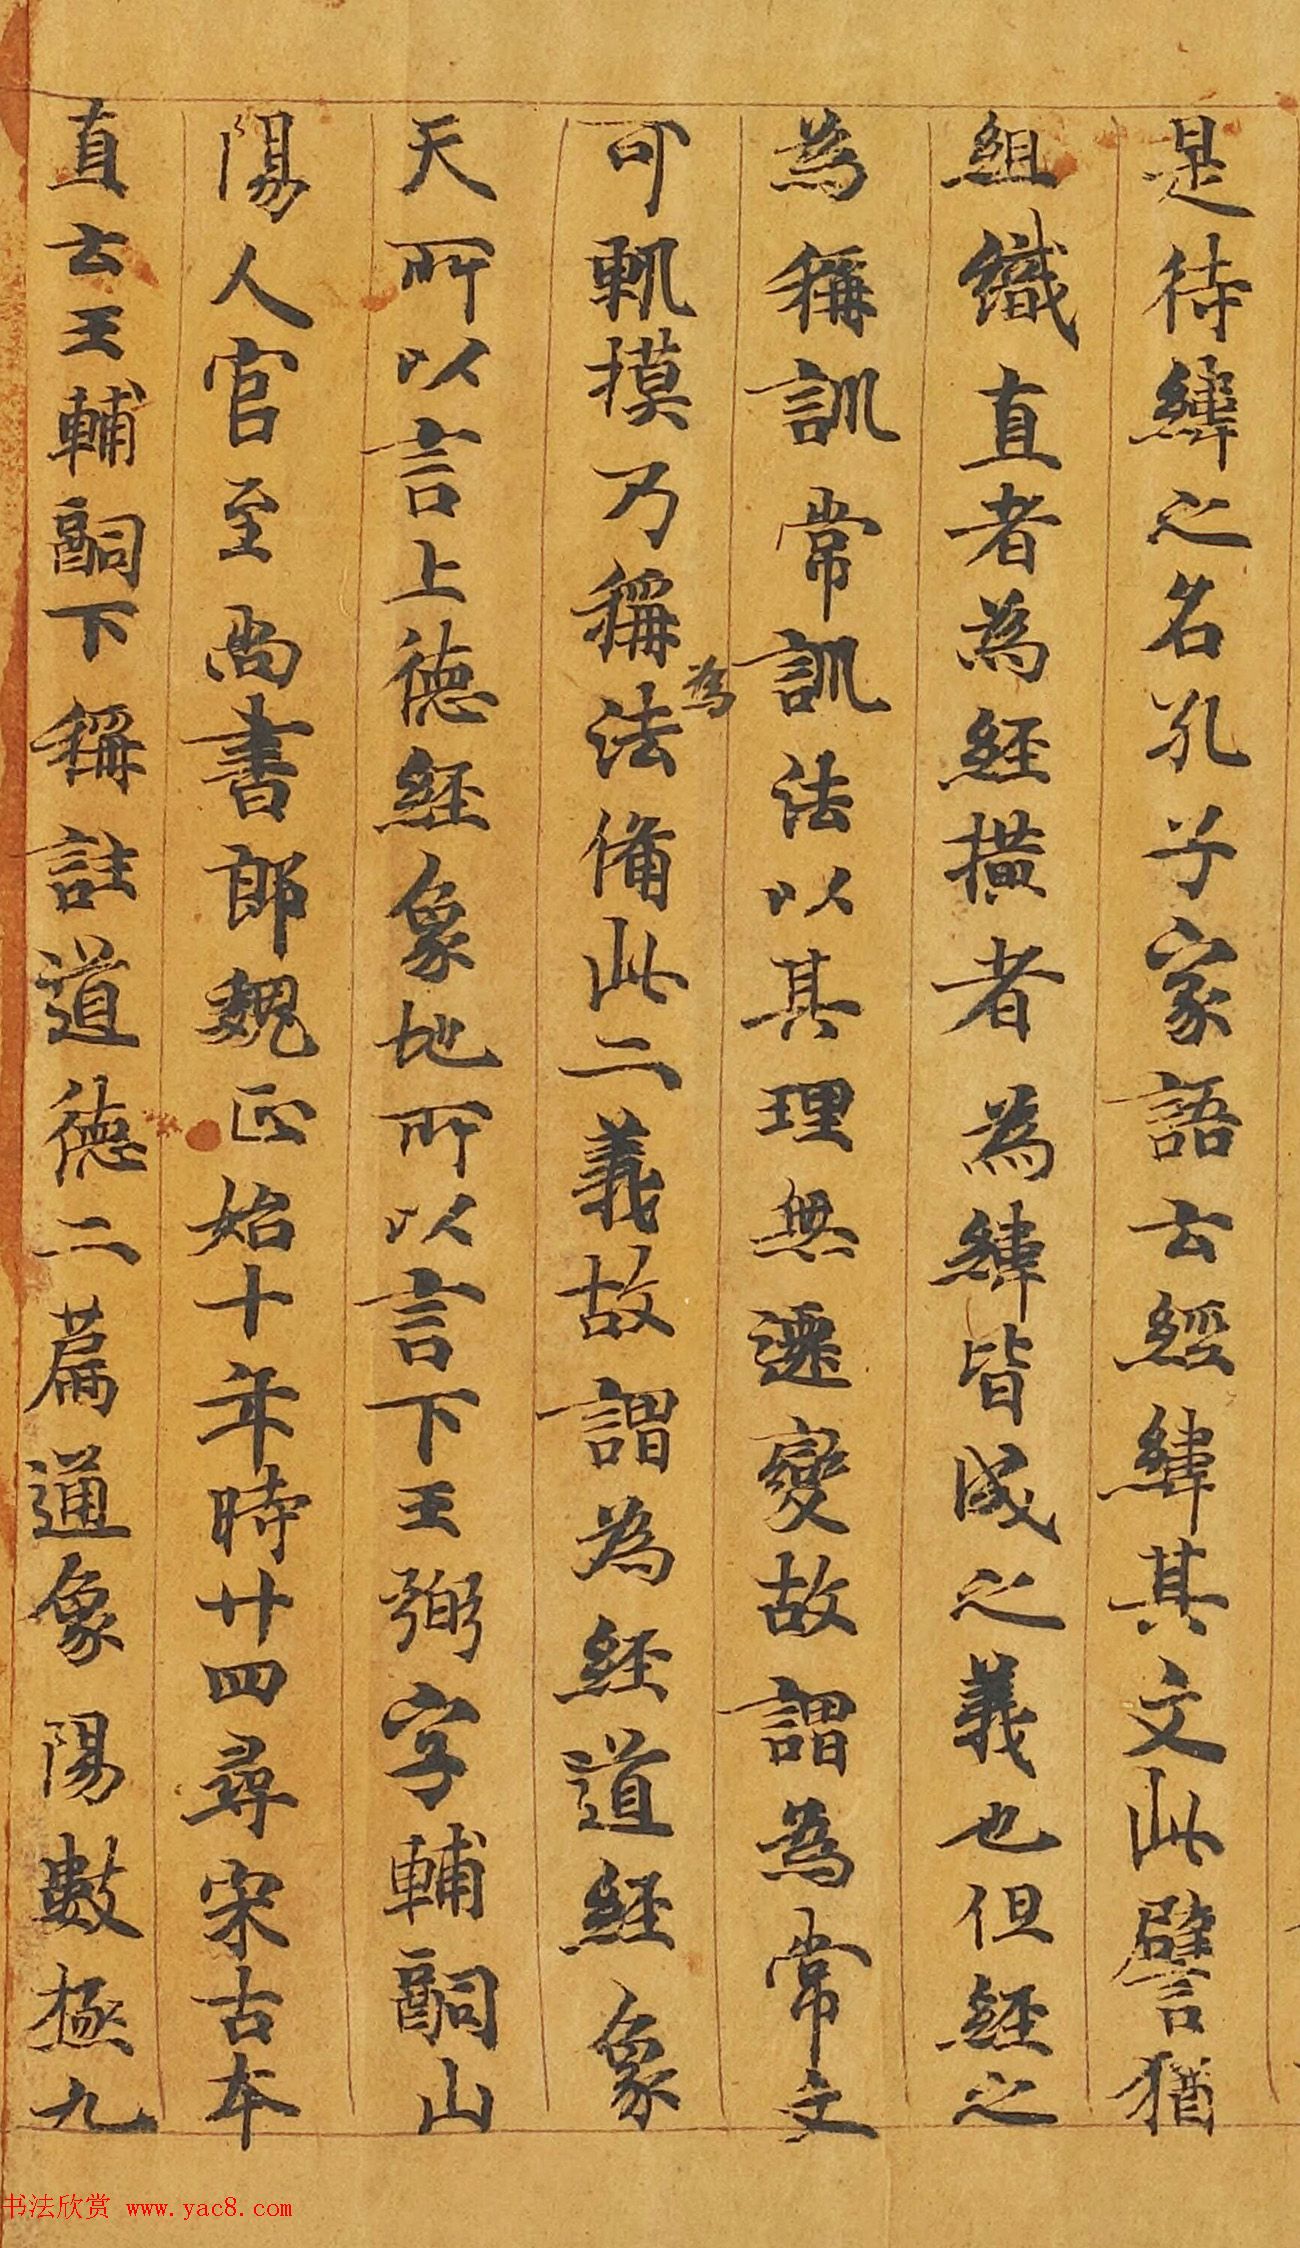 是待緯之名孔子家語云經緯其文此譬猶
組織直者為経横者為緯皆成之義也但経之
為稱訓常訓法以其理無遷變故謂為常文
可軌摸乃稱為法俻此二義故謂為経道経象
天所以言上德経象地所以言下王弼字輔嗣山
陽人官至尚書郎魏正始十年時廿四尋宋古本
直云王輔嗣下稱註道德二篇通象陽數極九
书法欣赏 www.yac8.com